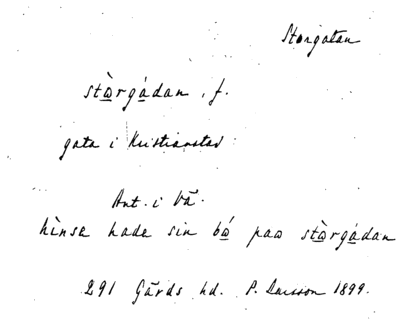 Storgatan
stòrgádan, f.
gata i Kristianstad
Ant. i Vä.
hìnse hade sin bó pao stòrgádan
291 Gärds hd. P. Larsson 1899.